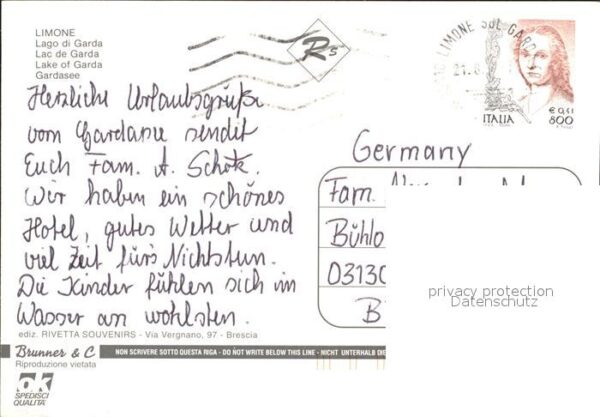 LIMONE
Lago di Garda
Lac de Garda
Lake of Garda
Gardasee
Herzliche Urlaubsgrüße
vom Gardasee sendet
Euch Fam. A. Schotz.
Wir haben ein schönes
Hotel, gutes Wetter und
viel Zeit für's Nichtstun.
Die Kinder fühlen sich im
Wasser am wohlsten.
ediz. RIVETTA SOUVENIRS - Via Vergnano, 97 - Brescia
Brunner & C
Riproduzione vietata
NON SCRIVERE SOTTO QUESTA RIGA - DO NOT WRITE BELOW THIS LINE - NICHT UNTERHALB DIE
ok
SPEDISCI
QUALITÀ
R5
LIMONE SUL GARDA
21.8
ITALIA
€ 0,41
800
Germany
Fam.
Bühlo
03130
B
privacy protection
Datenschutz